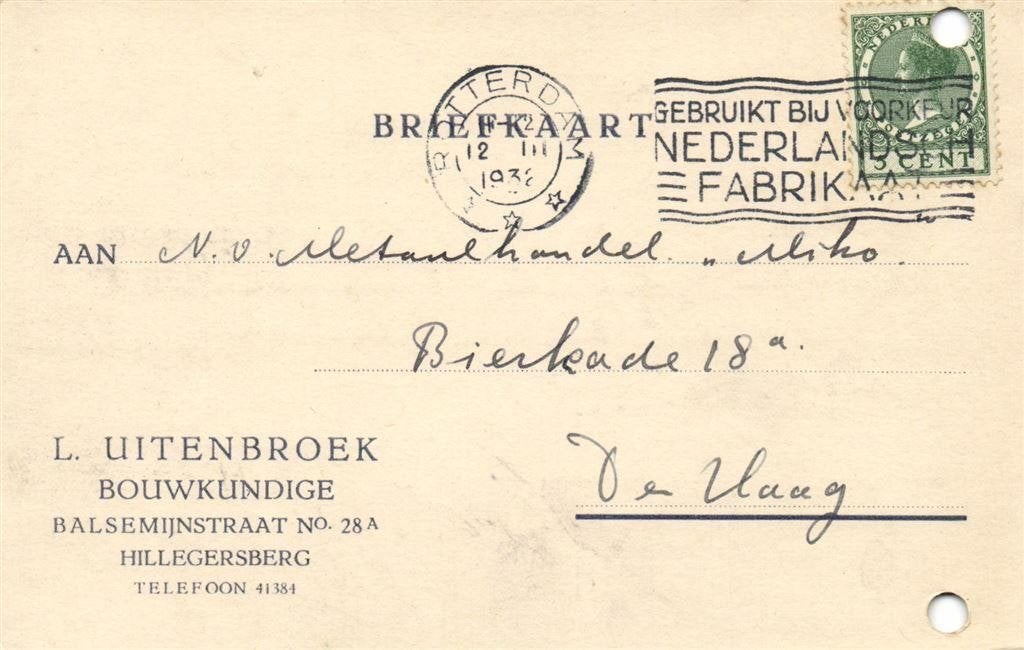 NEDERLAND
ROTTERDAM
12 III
1938
BRIEFKAART
GEBRUIKT BIJ VOORKEUR
NEDERLANDSCH
FABRIKAAT
5 CENT
AAN N.V. Metaalhandel „Miko"
Bierkade 18a.
Den Haag
L. UITENBROEK
BOUWKUNDIGE
BALSEMIJNSTRAAT NO. 28A
HILLEGERSBERG
TELEFOON 41384